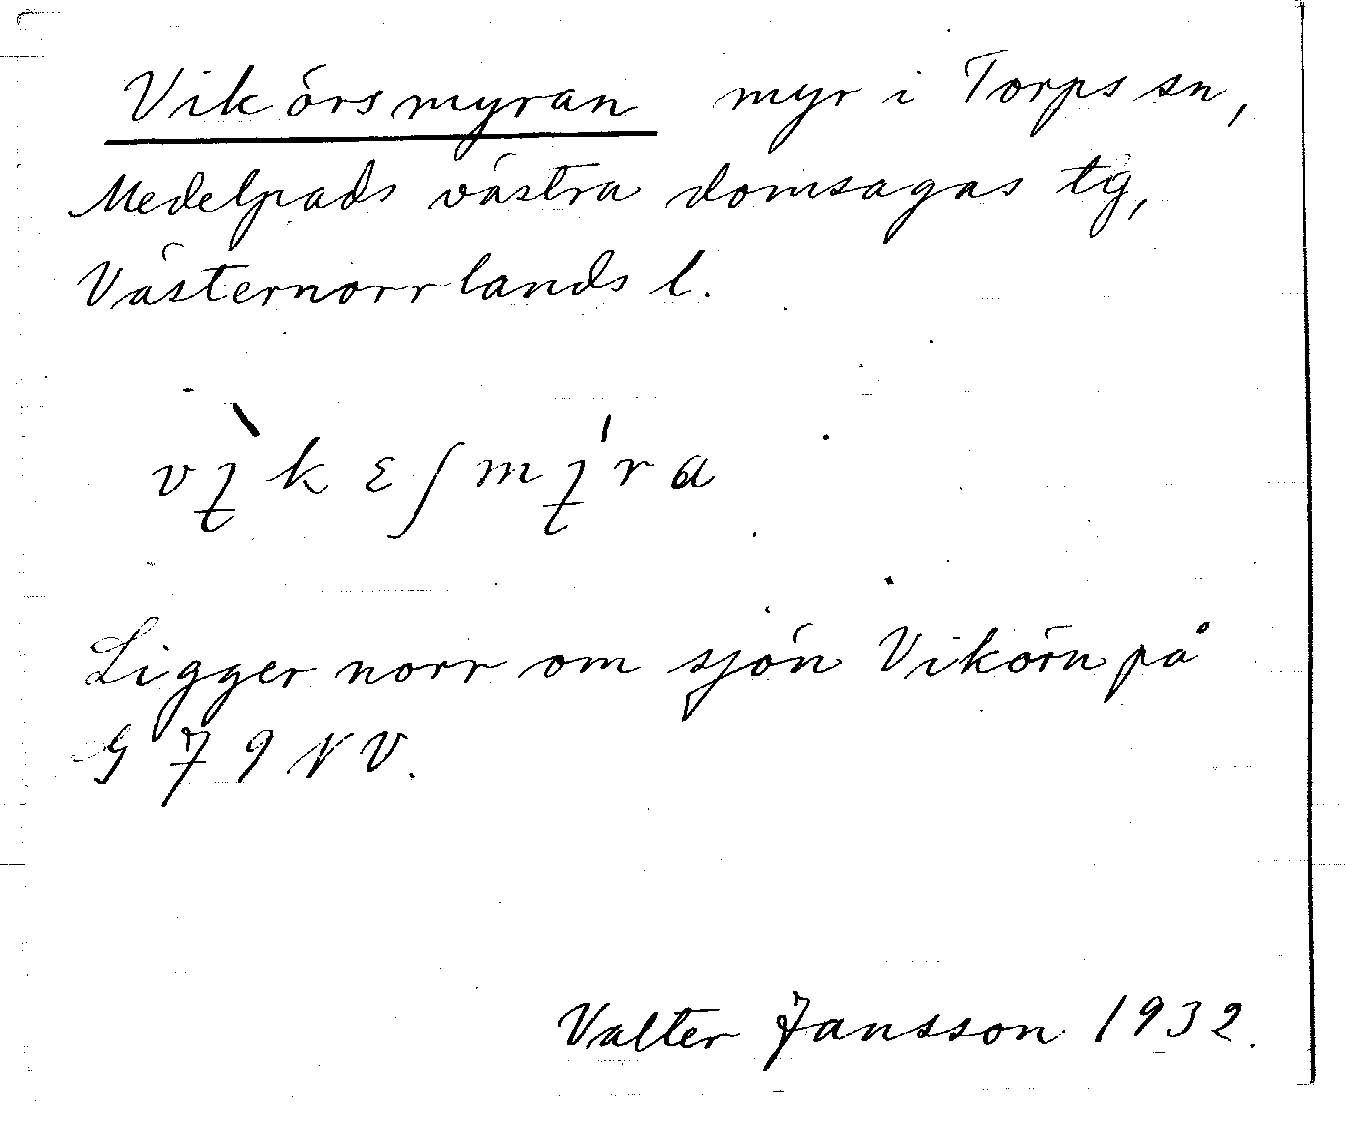 Vikörsmyran myr i Torps sn,
Medelpads västra domsagas tg,
Västernorrlands l.
Ligger norr om sjön Vikörn på
G 79 NV.
Valter Jansson 1932.